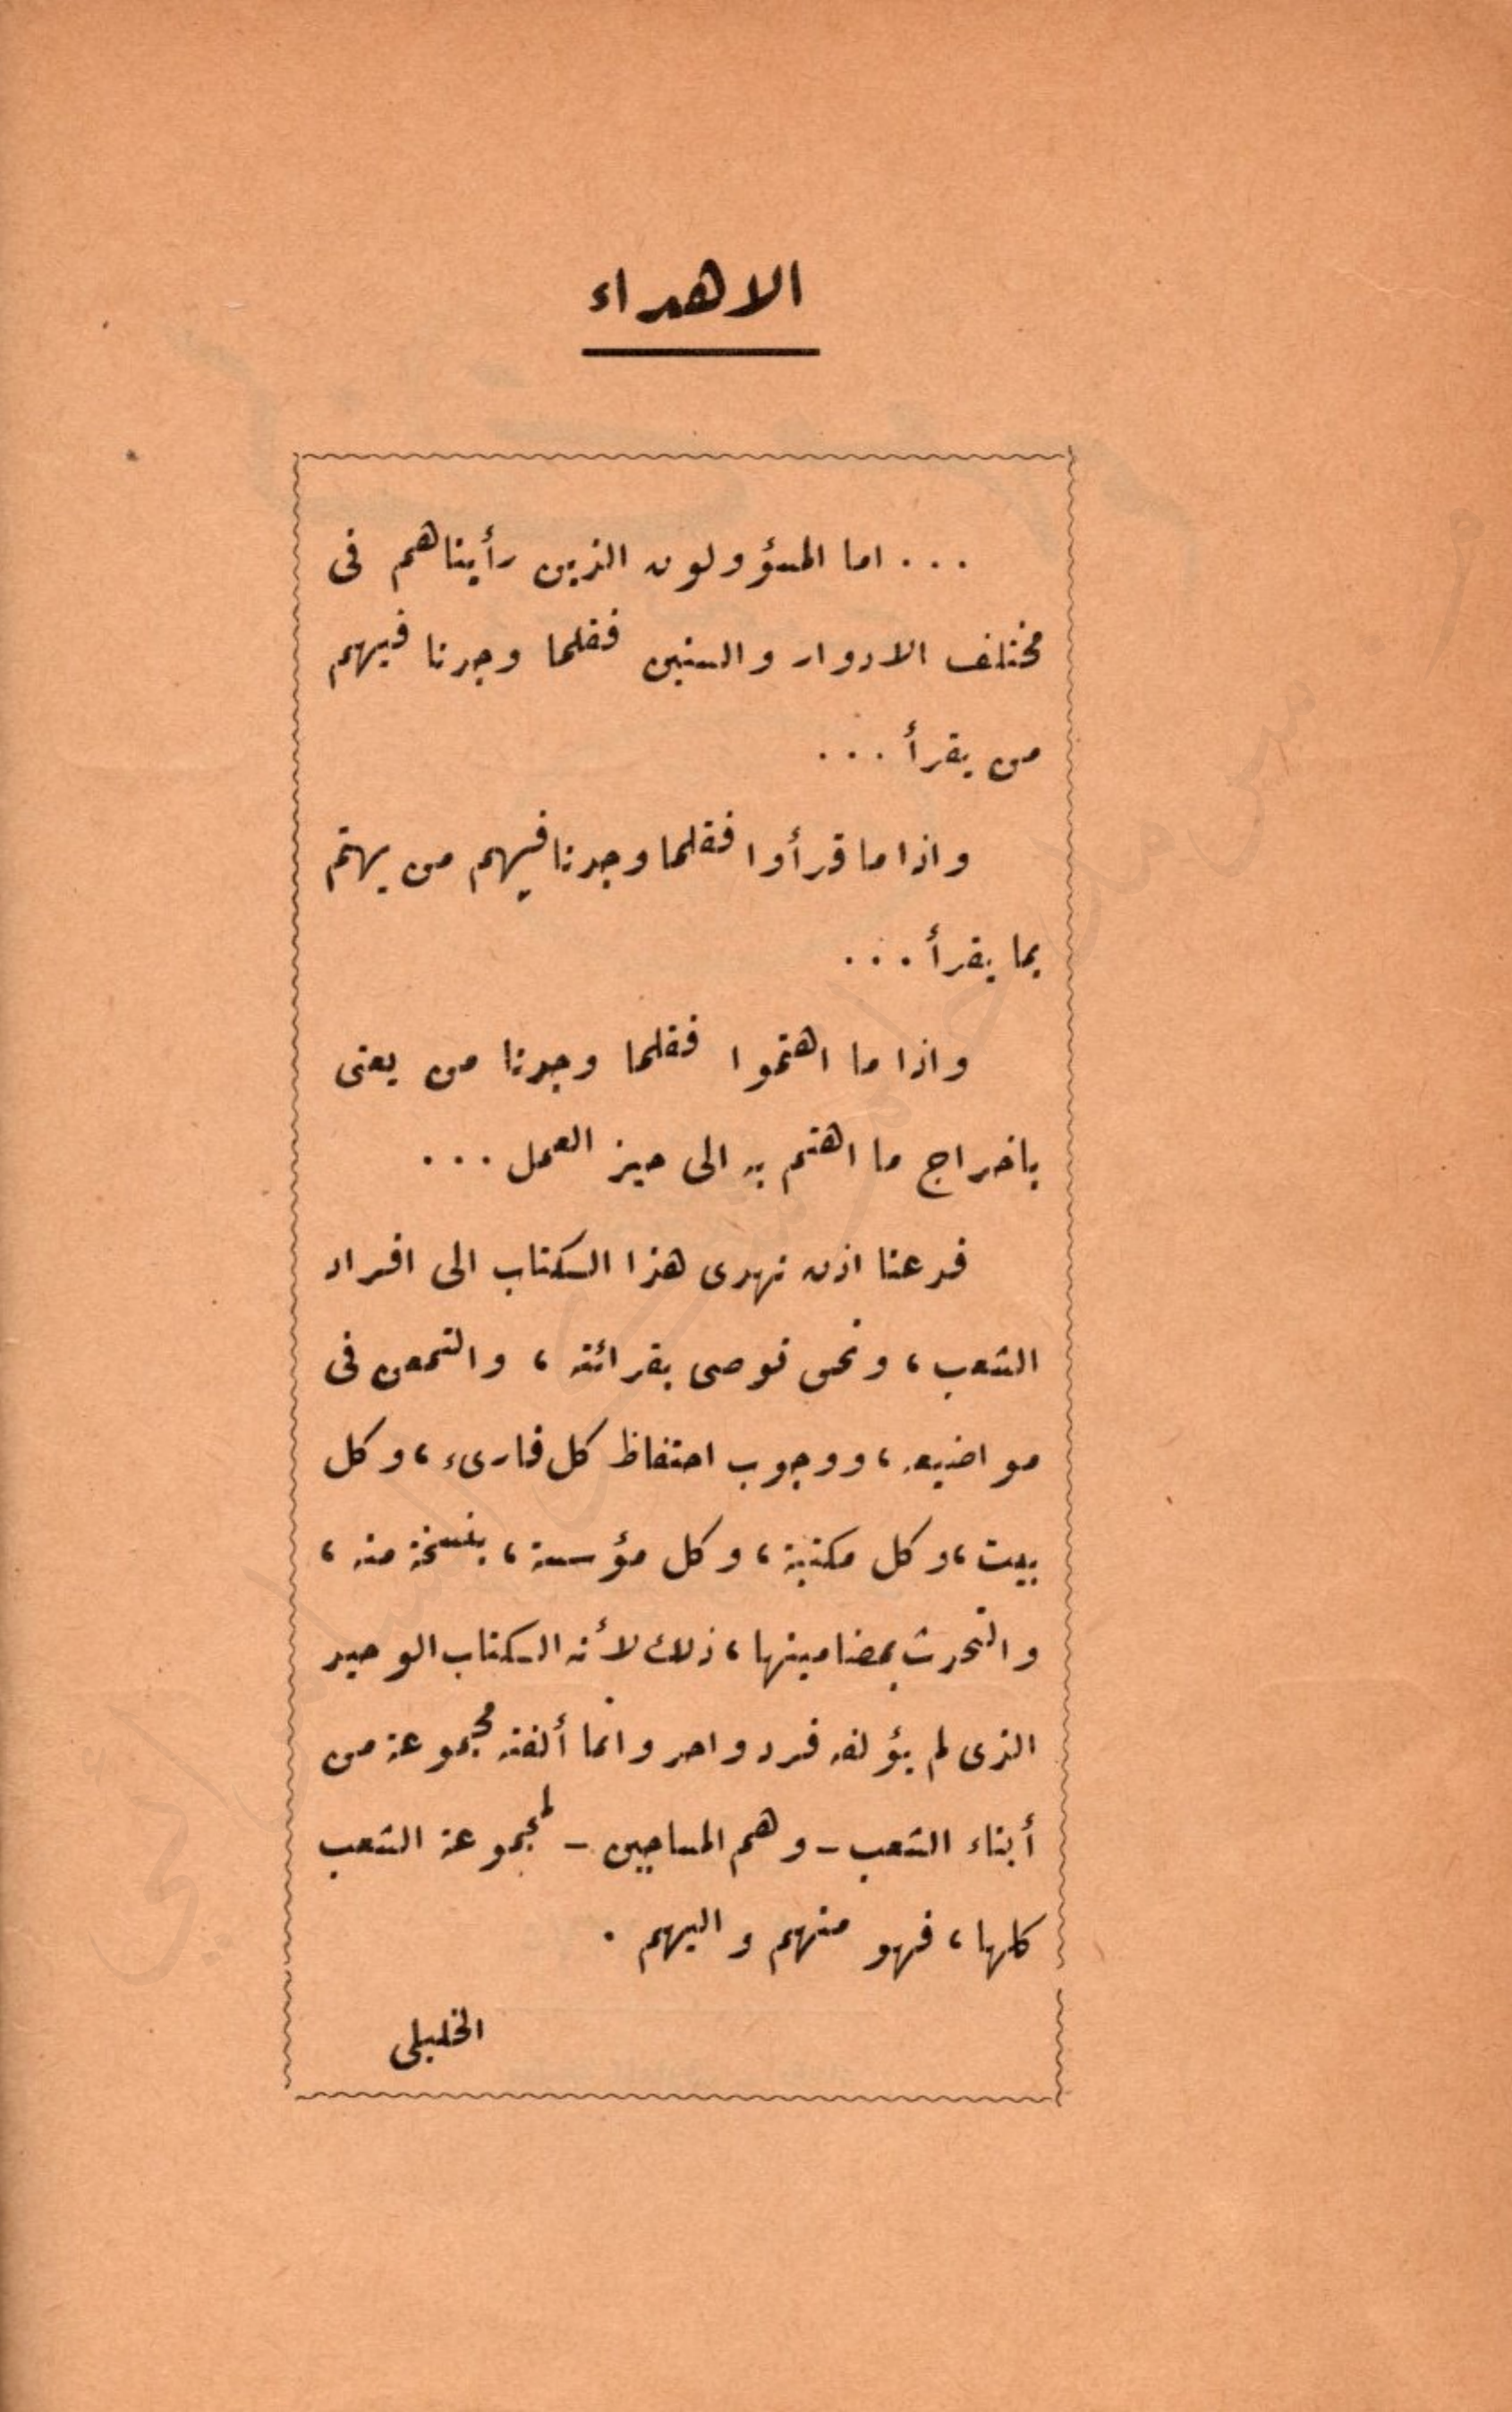 الاهداء
... اما المسؤولون الذين رأيناهم فى
مختلف الادوار والسنين فقلما وجدنا فيهم
من يقرأ ...
واذا ما قرأوا فقلما وجدنا فيهم من يهتم
بما يقرأ ...
واذا ما اهتموا فقلما وجدنا من يعنى
باخراج ما اهتم به الى حيز العمل ...
فدعنا اذن نهدى هذا الكتاب الى افراد
الشعب، ونحن نوصى بقرائته، والتمعن فى
مواضيعه، ووجوب احتفاظ كل قارىء، وكل
بيت، وكل مكتبة، وكل مؤسسة، بنسخة منه،
والتحدث بمضامينها، ذلك لأنه الكتاب الوحيد
الذى لم يؤلفه فرد واحد وانما ألفته مجموعة من
أبناء الشعب - وهم المساجين - لمجموعة الشعب
كلها، فهو منهم واليهم .
الخليلى